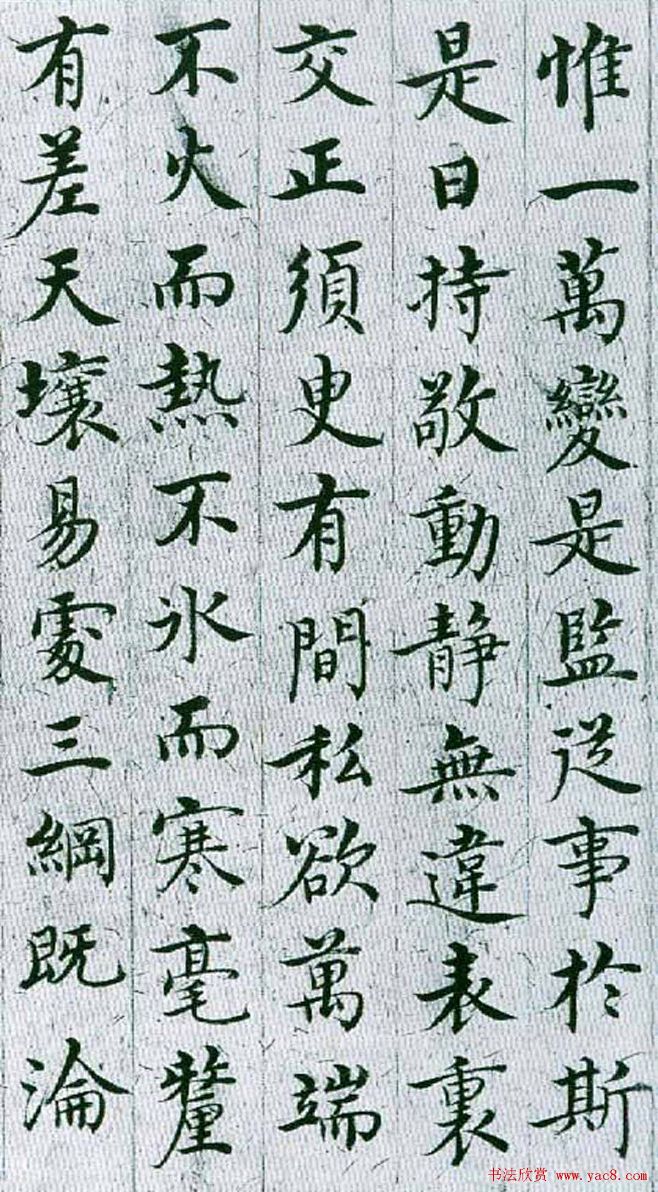 惟一萬變是監從事於斯
是曰持敬動静無違表裏
交正須臾有間私欲萬端
不火而熱不氷而寒毫釐
有差天壤易處三綱既淪
书法欣赏 www.yac8.com